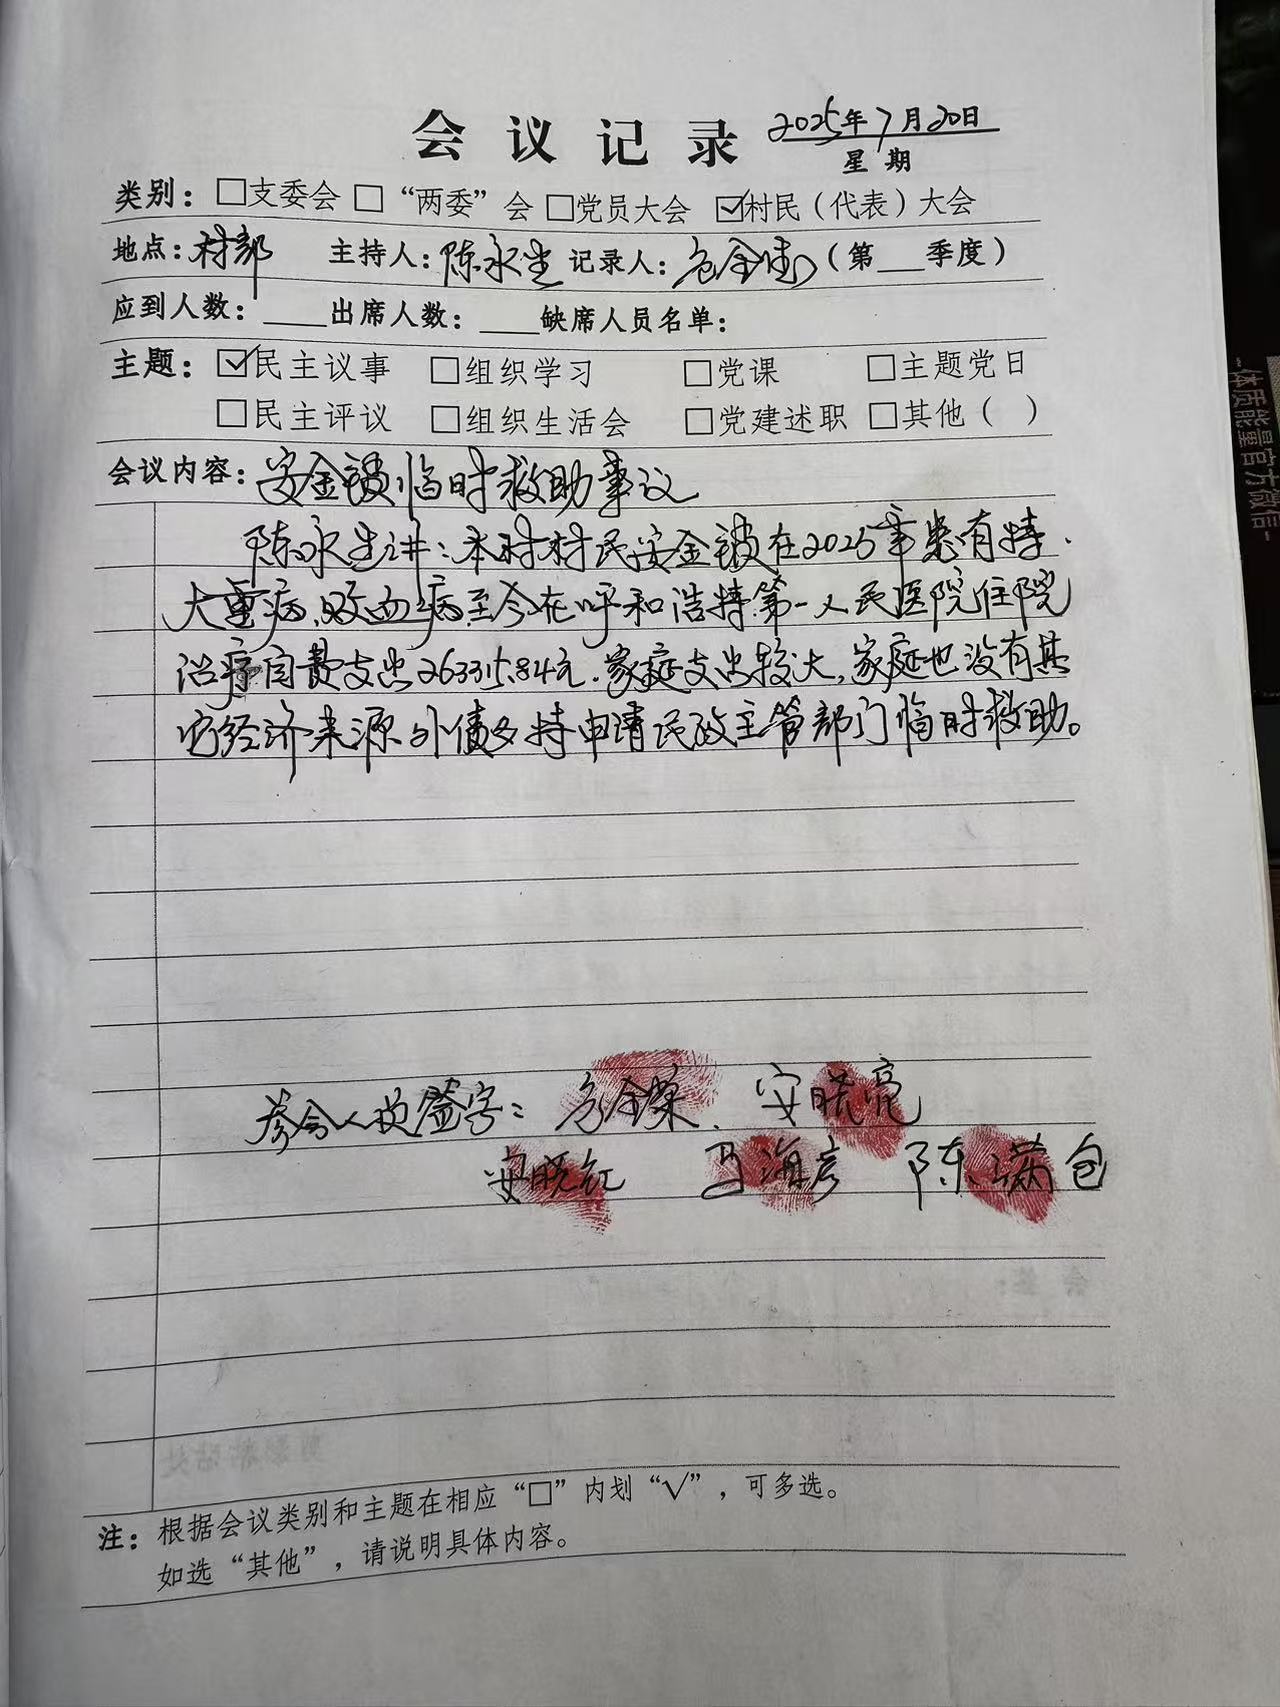 会议记录 2025年7月20日
星期
类别：□支委会 □“两委”会 □党员大会 ☑村民（代表）大会
地点：村部 主持人：陈永生 记录人： （第___季度）
应到人数：____出席人数：____缺席人员名单：
主题：☑民主议事 □组织学习 □党课 □主题党日
□民主评议 □组织生活会 □党建述职 □其他（ ）
会议内容：安金被临时救助事议
陈永生讲：本村村民安金被在2025年患有特
大重病，败血病至今在呼和浩特第一人民医院住院
治疗自费支出263315.84元.家庭支出较大,家庭也没有其
它经济来源外债多特申请民政主管部门临时救助。
参会人员签字： 安晓亮
安晓红 马海彦 陈满仓
注：根据会议类别和主题在相应“□”内划“√”，可多选。
如选“其他”，请说明具体内容。
体质能量官方微信